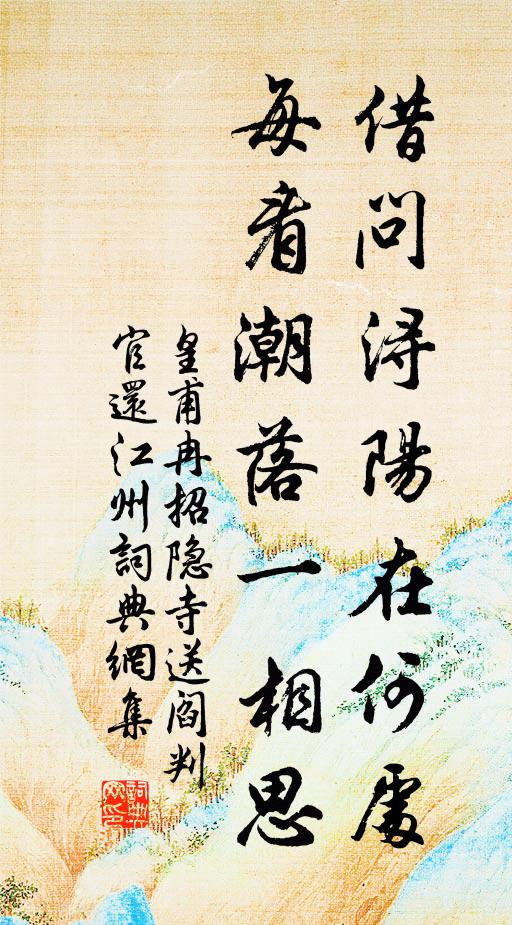 借問浔陽在何處
每看潮落一相思
皇甫冉招隐寺送阎判
官還江州詞典網集